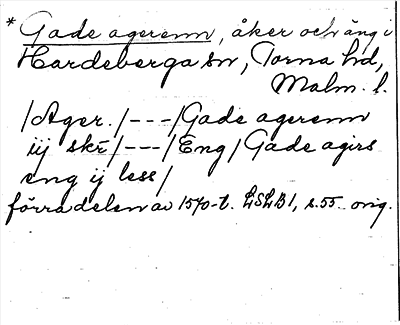 * Gade agerenn, åker och äng i
Hardeberga sn, Torna hd,
Malm. l.
/Ager./---/Gade agerenn
iij skr̄/---/Eng/Gade agirs
eng ij less/
förra delen av 1570-t. LSLB1, s.55 orig.